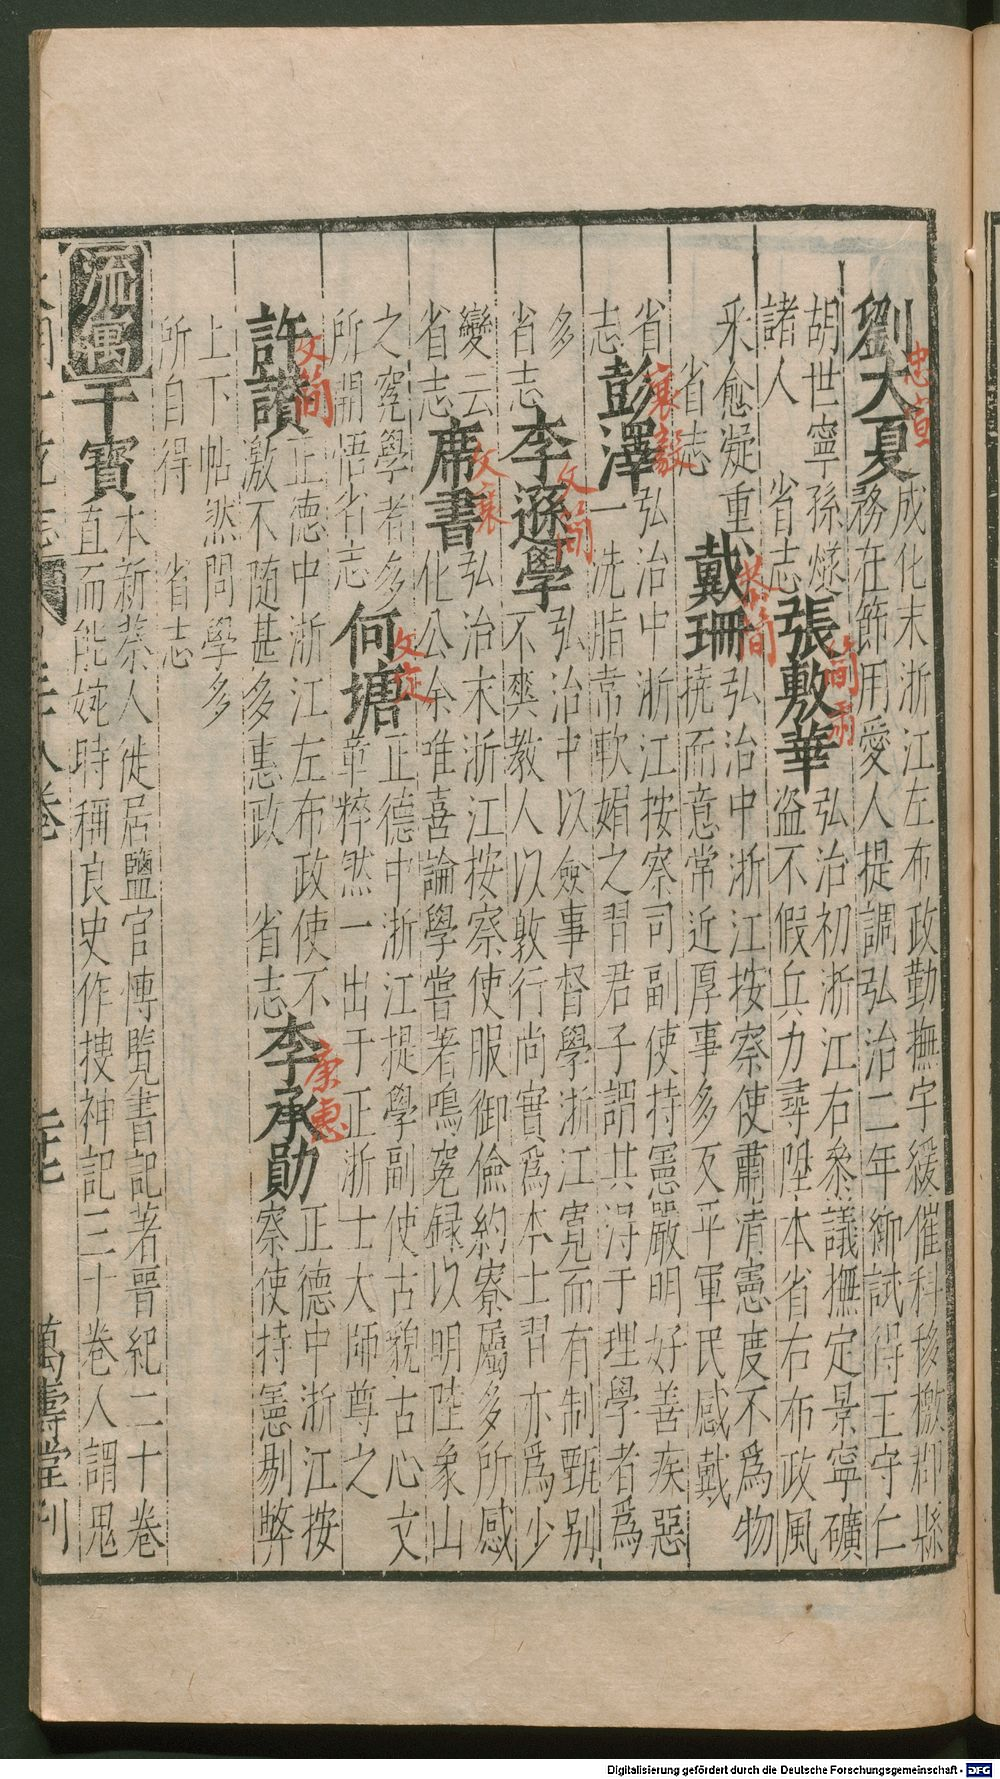 劉大夏
忠宣
成化末浙江左布政勤撫字緩催科移檄郡縣
務在節用愛人提調弘治二年鄉試得王守仁
胡世寧孫燧
諸人　省志
張敷華
簡肅
弘治初浙江右參議撫定景寧礦
盗不假兵力尋陞本省右布政風
采愈凝重
省志
戴珊
恭簡
弘治中浙江按察使肅清憲度不爲物
撓而意常近厚事多反平軍民感戴
省
志
彭澤
襄毅
弘治中浙江按察司副使持憲嚴明好善疾惡
一洗脂韋軟媚之習君子謂其得于理學者爲
多
省志
李遜學
文簡
弘治中以僉事督學浙江寬而有制甄别
不爽教人以敦行尚實爲本士習亦爲少
變云
省志
席書
文襄
弘治末浙江按察使服御儉約寮屬多所感
化公余唯喜論學嘗著鳴冤録以明陸象山
之冤學者多
所開悟省志
何塘
文定
正德中浙江提學副使古貌古心文
章粹然一出于正浙士大師尊之
許讚
文簡
正德中浙江左布政使不
激不随甚多惠政　省志
李承勛
康惠
正德中浙江按
察使持憲剔弊
上下帖然問學多
所自得　省志
流寓
干寶
本新蔡人徙居鹽官博覧書記著晋紀二十卷
直而能婉時稱良史作搜神記三十卷人謂鬼
萬壽堂刊
Digitalisierung gefördert durch die Deutsche Forschungsgemeinschaft - DFG